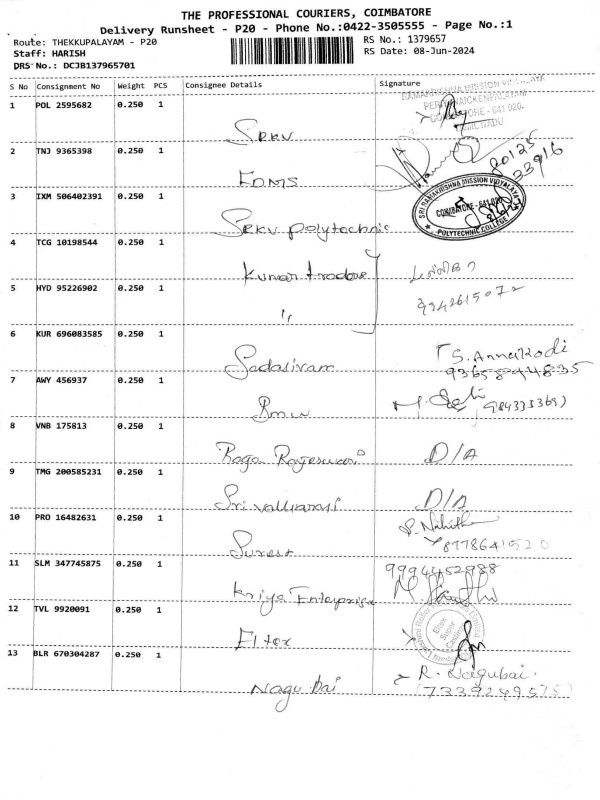 THE PROFESSIONAL COURIERS, COIMBATORE
Delivery Runsheet - P20 - Phone No.:0422-3505555 - Page No.:1
Route: THEKKUPALAYAM - P20
RS No.: 1379657
Staff: HARISH
RS Date: 08-Jun-2024
DRS No.: DCJB137965701
S No Consignment No Weight PCS Consignee Details Signature
RAMAKRISHNA MISSION VIDYALAYA
PERIYANAICKENPALAYAM
COIMBATORE - 641 020.
TAMIL NADU
1 POL 2595682 0.250 1
SRKV
2 TNJ 9365398 0.250 1
EDMS
3 IXM 506402391 0.250 1
SRI RAMAKRISHNA MISSION VIDYALAYA
COIMBATORE - 641 020.
POLYTECHNIC COLLEGE
SRKV polytechnic
4 TCG 10198544 0.250 1
Kumar traders
5 HYD 95226902 0.250 1
9942615072
"
6 KUR 696083585 0.250 1
S. Annakodi
Sadasivam 9365894835
7 AWY 456937 0.250 1
Bmw
8 VNB 175813 0.250 1
Raga Rajeswari D/A
9 TMG 200585231 0.250 1
Sri valliarasi D/A
10 PRO 16482631 0.250 1
Suresh
11 SLM 347745875 0.250 1
9994452988
Kriya Enterprise
12 TVL 9920091 0.250 1
Eltex
13 BLR 670304287 0.250 1
R. Nagubai.
Nagu bai (7339249575)